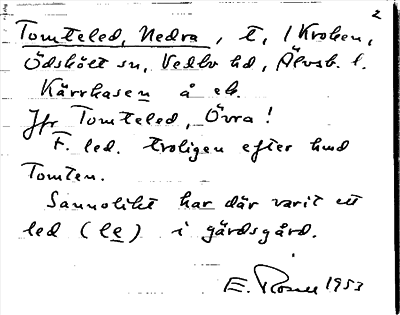 2
Tomteled, Nedra, t, i Kroken,
Ödskölt sn, Vedbo hd, Älvsb. l.
Kärrhasen å ek.
Jfr Tomteled, Övra!
F. led. troligen efter hmd
Tomten.
Sannolikt har där varit ett
led (le) i gärdsgård.
E. Rosell 1953